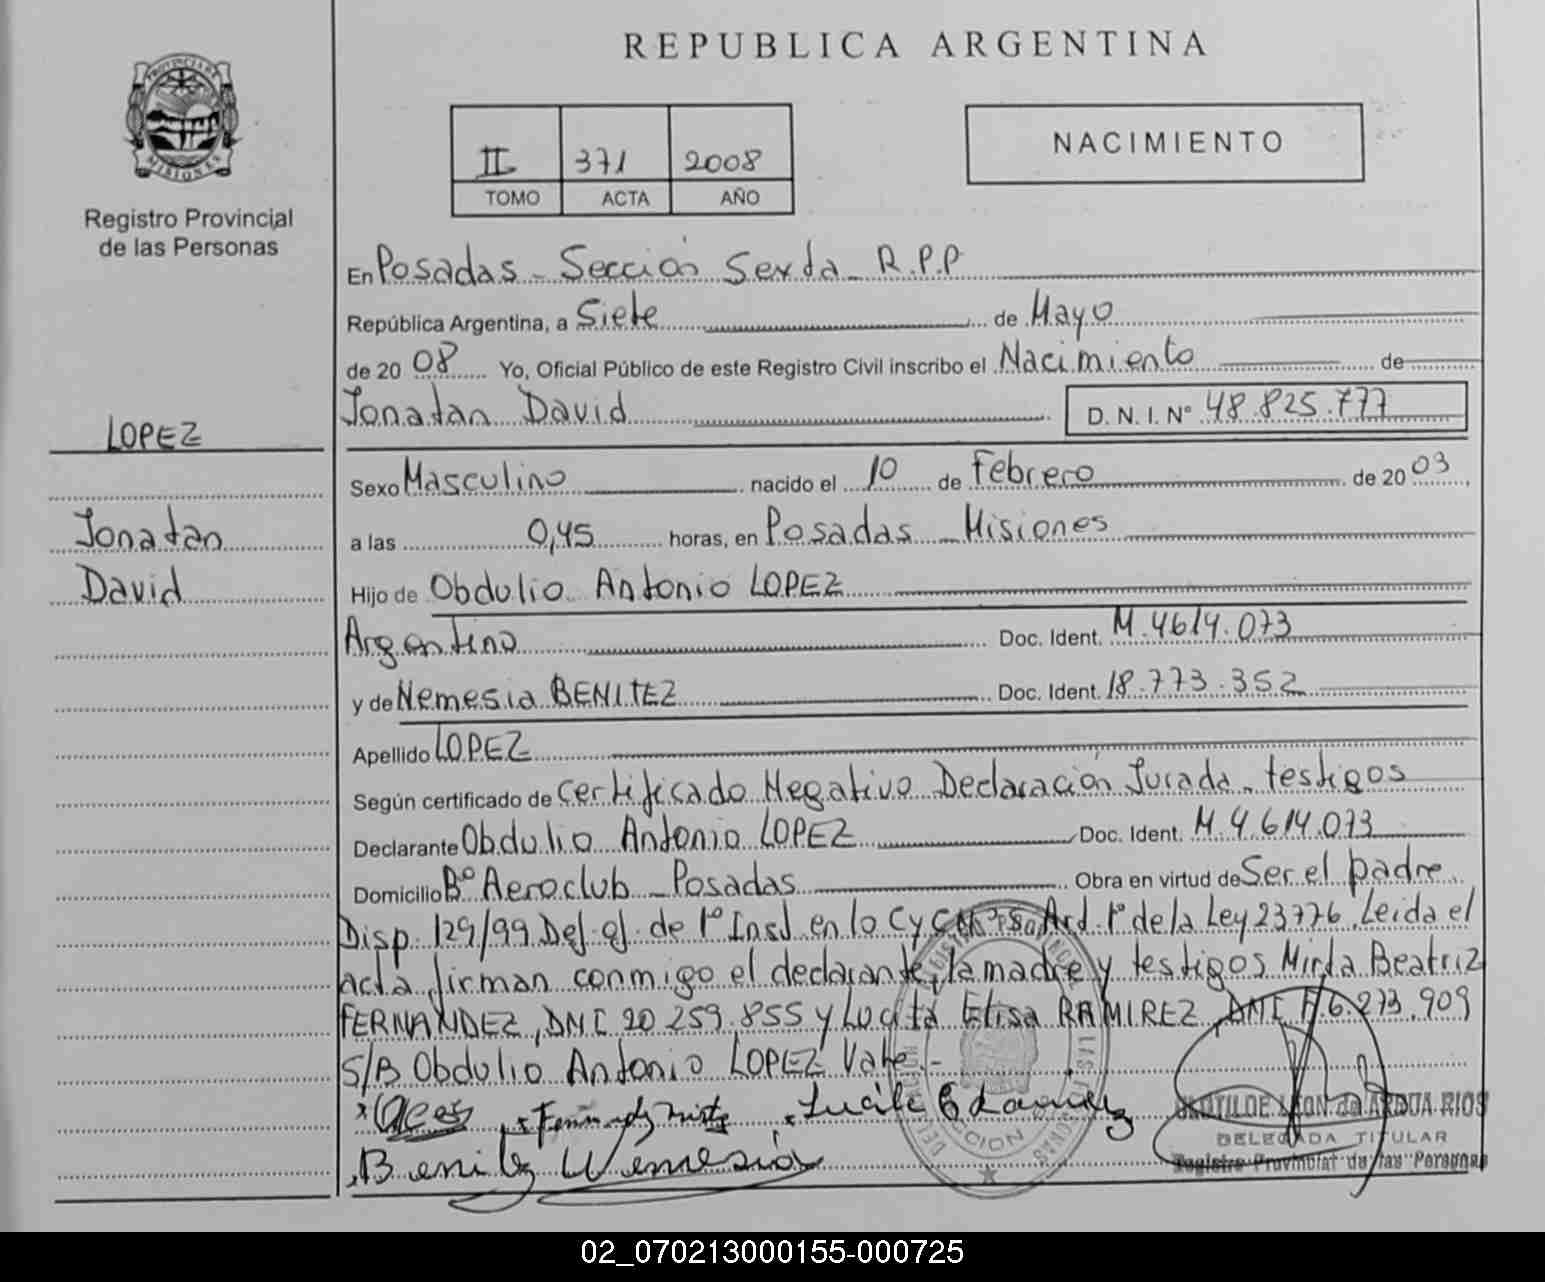 REPUBLICA ARGENTINA
PROVINCIA DE
MISIONES
Registro Provincial
de las Personas
II 371 2008
TOMO ACTA AÑO
NACIMIENTO
En Posadas - Sección Sexta - R.P.P
República Argentina, a Siete de Mayo
de 2008 Yo, Oficial Público de este Registro Civil inscribo el Nacimiento de
Jonatan David D. N. I. N° 48.825.777
LOPEZ
Jonatan
David
Sexo Masculino nacido el 10 de Febrero de 2003
a las 0,45 horas, en Posadas - Misiones
Hijo de Obdulio Antonio LOPEZ
Argentino Doc. Ident. M.4614.073
y de Nemesia BENITEZ Doc. Ident. 18.773.352
Apellido LOPEZ
Según certificado de Certificado Negativo Declaración Jurada - testigos
Declarante Obdulio Antonio LOPEZ Doc. Ident. M 4.614.073
Domicilio B° Aeroclub - Posadas Obra en virtud de Ser el padre
Disp. 129/99 Def. of. de 1° Inst en lo C y C N° Art. 1° de la Ley 23776. Leida el
acta firman conmigo el declarante, la madre y testigos Mirta Beatriz
FERNANDEZ, DNI 20 259.855 y Lucila Elisa RAMIREZ, DNI F.6.273.909
S/B Obdulio Antonio LOPEZ Vale.-
Benitez Nemesia
CLOTILDE LEON de ARDUA RIOS
DELEGADA TITULAR
Registro Provincial de las Personas
02_070213000155-000725